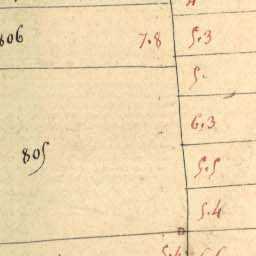 806 7.8 5.3
5.
6.3
805
5.5
5.4